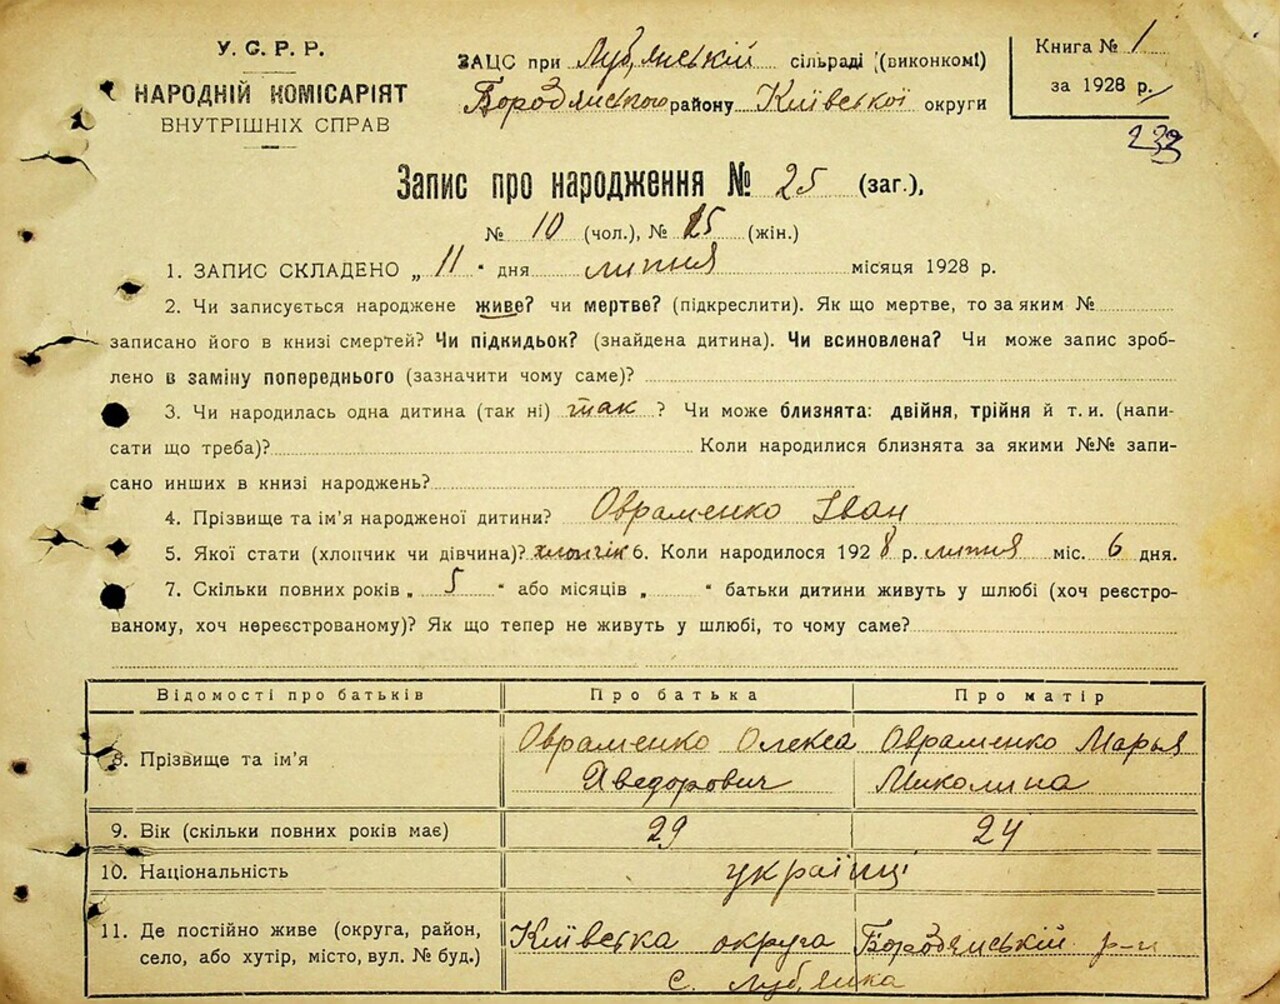 У. С. Р. Р.
НАРОДНІЙ КОМІСАРІЯТ
ВНУТРІШНІХ СПРАВ
ЗАЦС при Луб'янській сільраді (виконкомі)
Бородянського району Київської округи
Книга № 1
за 1928 р.
232
Запис про народження № 25 (заг.),
№ 10 (чол.), № 15 (жін.)
1. ЗАПИС СКЛАДЕНО „ 11 " дня липня місяця 1928 р.
2. Чи записується народжене живе? чи мертве? (підкреслити). Як що мертве, то за яким №
записано його в книзі смертей? Чи підкидьок? (знайдена дитина). Чи всиновлена? Чи може запис зроб-
лено в заміну попереднього (зазначити чому саме)?
3. Чи народилась одна дитина (так ні) так ? Чи може близнята: двійня, трійня й т. и. (напи-
сати що треба)? Коли народилися близнята за якими №№ запи-
сано инших в книзі народжень?
4. Прізвище та ім'я народженої дитини? Овраменко Іван
5. Якої стати (хлопчик чи дівчина)? хлопчік 6. Коли народилося 1928 р. липня міс. 6 дня.
7. Скільки повних років „ 5 " або місяців „ " батьки дитини живуть у шлюбі (хоч реєстро-
ваному, хоч нереєстрованому)? Як що тепер не живуть у шлюбі, то чому саме?
Відомості про батьків Про батька Про матір
8. Прізвище та ім'я Овраменко Олекса Хведорович Овраменко Марья Миколина
9. Вік (скільки повних років має) 29 24
10. Національність українці
11. Де постійно живе (округа, район, Київська округа Бородянській р-н
село, або хутір, місто, вул. № буд.) с. Луб'янка